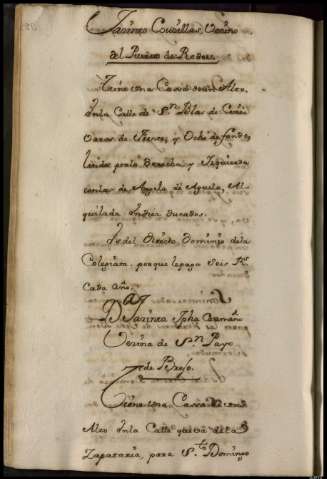 Jazinto Couillas, Vecino
del Puerto de Redes.
Tiene una Casa de un Alto,
en la Calle de Sn. Blas de Cinco
Varas de frente, y Ocho de fondo
linda por la Derecha, y Izquierda
con las de Angela de Aguela, Al
quilada en diez Ducados.
Es del Directo Dominio de la
Colegiata, porque le paga Seis rs.
Cada año.
Jazinta Jpha
Vecina de Sn. Payo
de
Tiene una Casa de un
Alto en la Calle que va de la
Zapateria, para Sto. Domingo